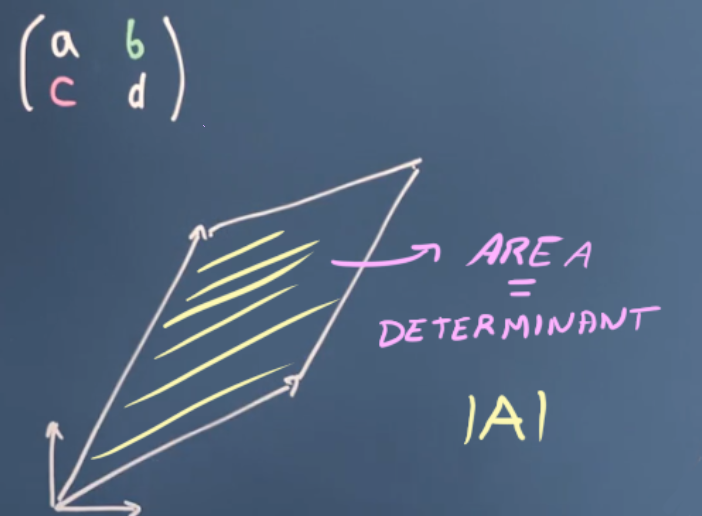 a b
c d
AREA
=
DETERMINANT
|A|